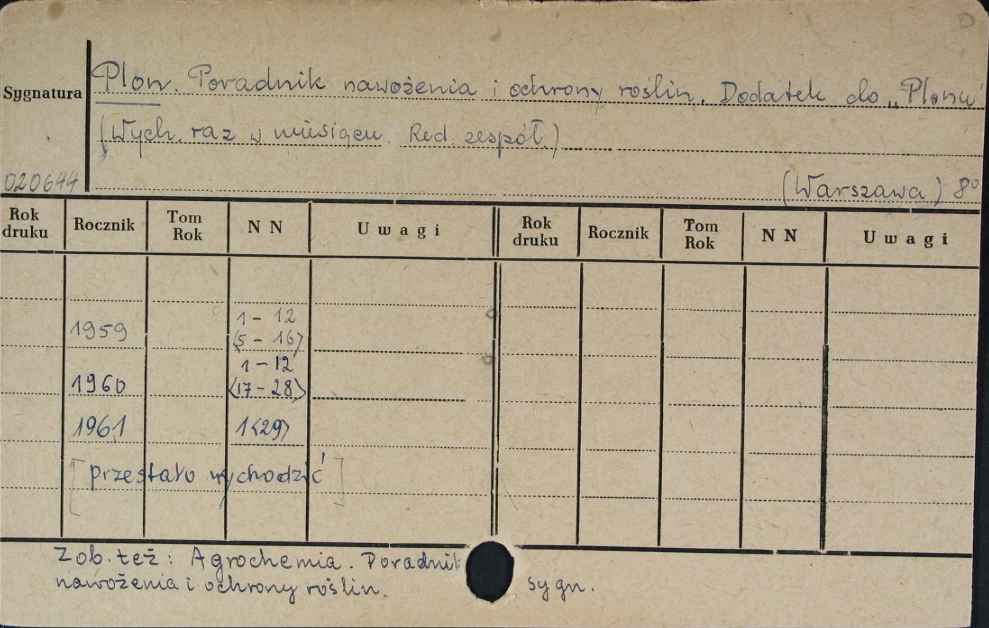 Sygnatura
Plon. Poradnik nawożenia i ochrony roślin. Dodatek do „Plonu”
(Wych. raz w miesiącu. Red. zespół.)
020644 (Warszawa) 8°
Rok druku Rocznik Tom Rok N N Uwagi Rok druku Rocznik Tom Rok N N Uwagi
1959 1-12
(5-16)
1960 1-12
<17-28>
1961 1<29>
[przestało wychodzić]
Zob. też: Agrochemia. Poradnik
nawożenia i ochrony roślin. sygn.